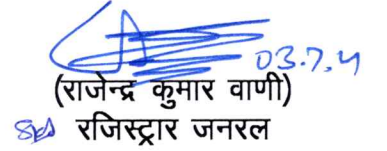 03.7.24
(राजेन्द्र कुमार वाणी)
रजिस्ट्रार जनरल